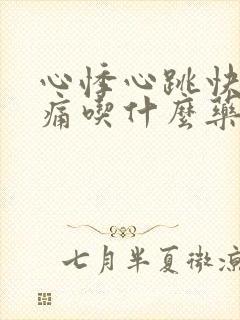 心悸心跳快
痛喫什麼藥
七月半夏微涼